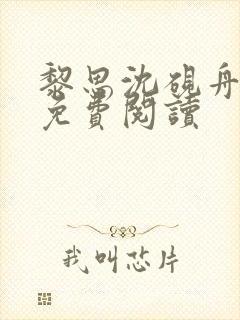 黎思沈硯舟
免費閱讀
我叫芯片